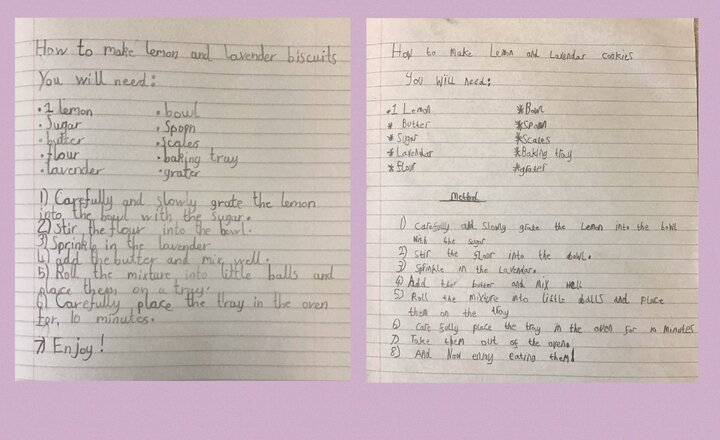 How to make lemon and lavender biscuits
You will need:
• 1 lemon
• Sugar
• butter
• flour
• lavender
• bowl
• Spoon
• Scales
• baking tray
• grater
1) Carefully and slowly grate the lemon
into the bowl with the sugar.
2) Stir the flour into the bowl.
3) Sprinkle in the lavender
4) add the butter and mix well.
5) Roll the mixture into little balls and
place them on a tray.
6) Carefully place the tray in the oven
for, 10 minutes.
7) Enjoy!
How to make Lemon and Lavendar cookies
You will need:
• 1 Lemon
* Butter
* Sugar
* Lavendar
* flour
* Bowl
* Spoon
* Scales
* Baking tray
* grater
Method
1) Carefully add Slowly grate the Lemon into the bowl
with the sugar
2) Stir the flour into the bowl.
3) Sprinkle in the Lavendar.
4) Add the butter and mix well
5) Roll the mixture into little balls and place
them on the tray
6) Carefully place the tray in the oven for 10 minutes
7) Take them out of the oven.
8) And Now enjoy eating them!